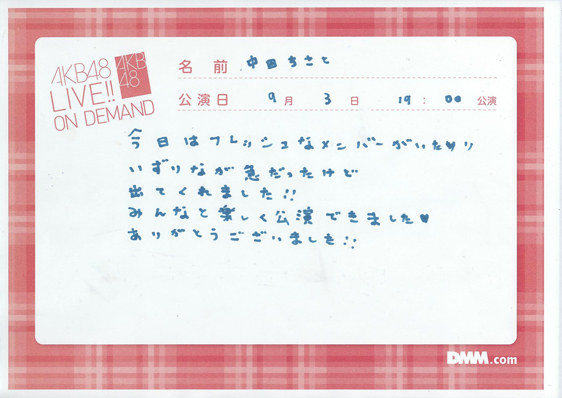 AKB48
LIVE!!
ON DEMAND
AKB
48
名前 中田ちさと
公演日 9月 3日 19:00 公演
今日はフレッシュなメンバーがいた♥り
いずりなが急だったけど
出てくれました!!
みんなと楽しく公演できました♥
ありがとうございました!!
DMM.com